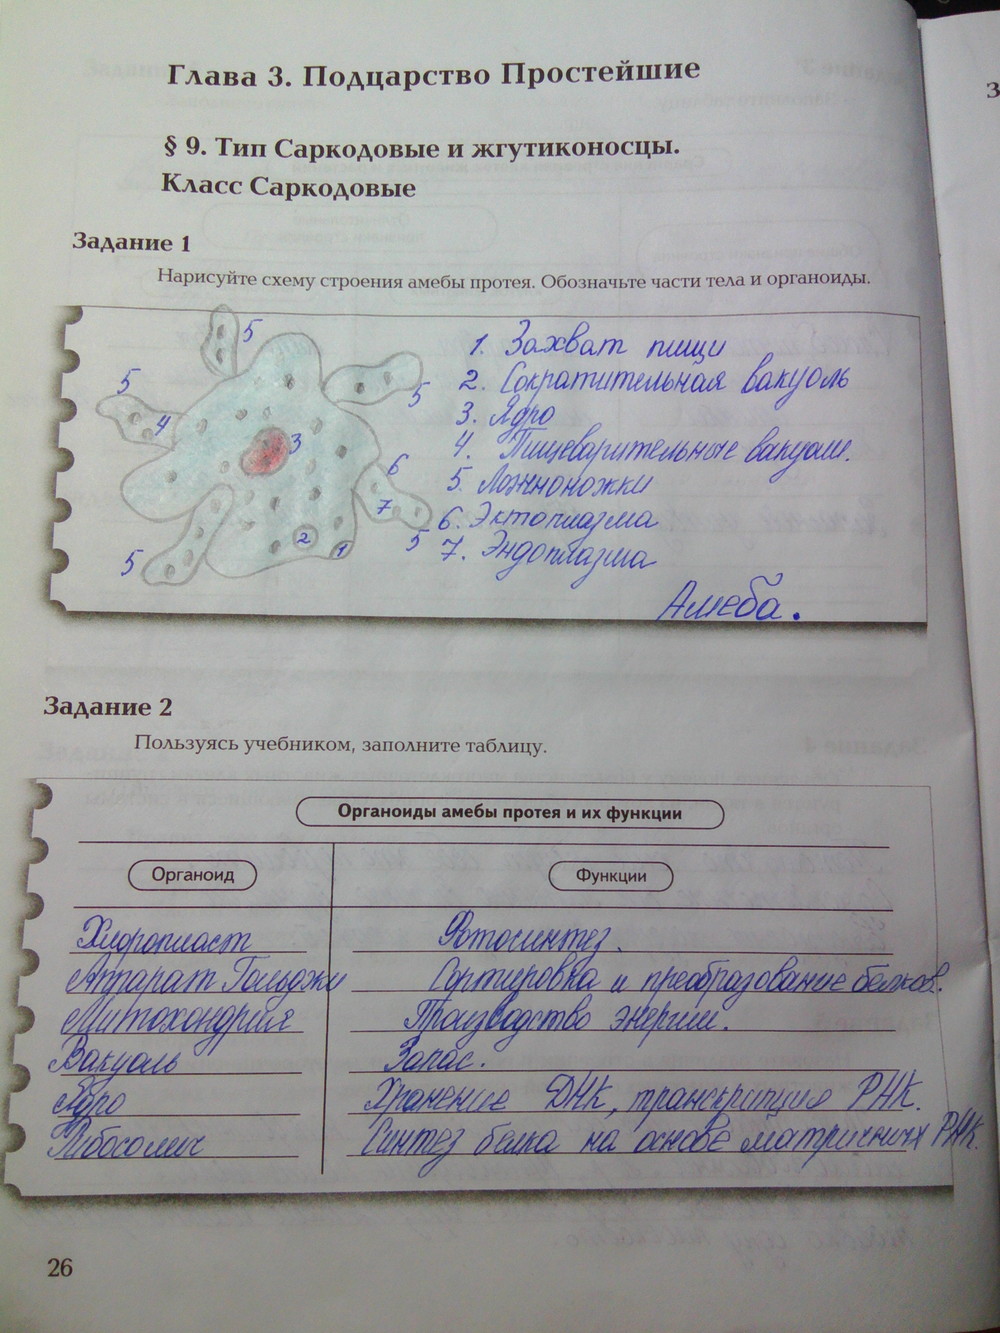 Глава 3. Подцарство Простейшие
§ 9. Тип Саркодовые и жгутиконосцы.
Класс Саркодовые
Задание 1
Нарисуйте схему строения амебы протея. Обозначьте части тела и органоиды.
5
5
5
4
3
6
7
2
1
5
5
1. Захват пищи
2. Сократительная вакуоль
3. Ядро
4. Пищеварительные вакуоли.
5. Ложноножки
6. Эктоплазма
7. Эндоплазма
Амеба.
Задание 2
Пользуясь учебником, заполните таблицу.
Органоиды амебы протея и их функции
Органоид Функции
Хлоропласт Фотосинтез.
Аппарат Гольджи Сортировка и преобразование белков.
Митохондрия Производство энергии.
Вакуоль Запас.
Ядро Хранение ДНК, транскрипция РНК.
Рибосомы Синтез белка на основе матричных РНК.
26
З